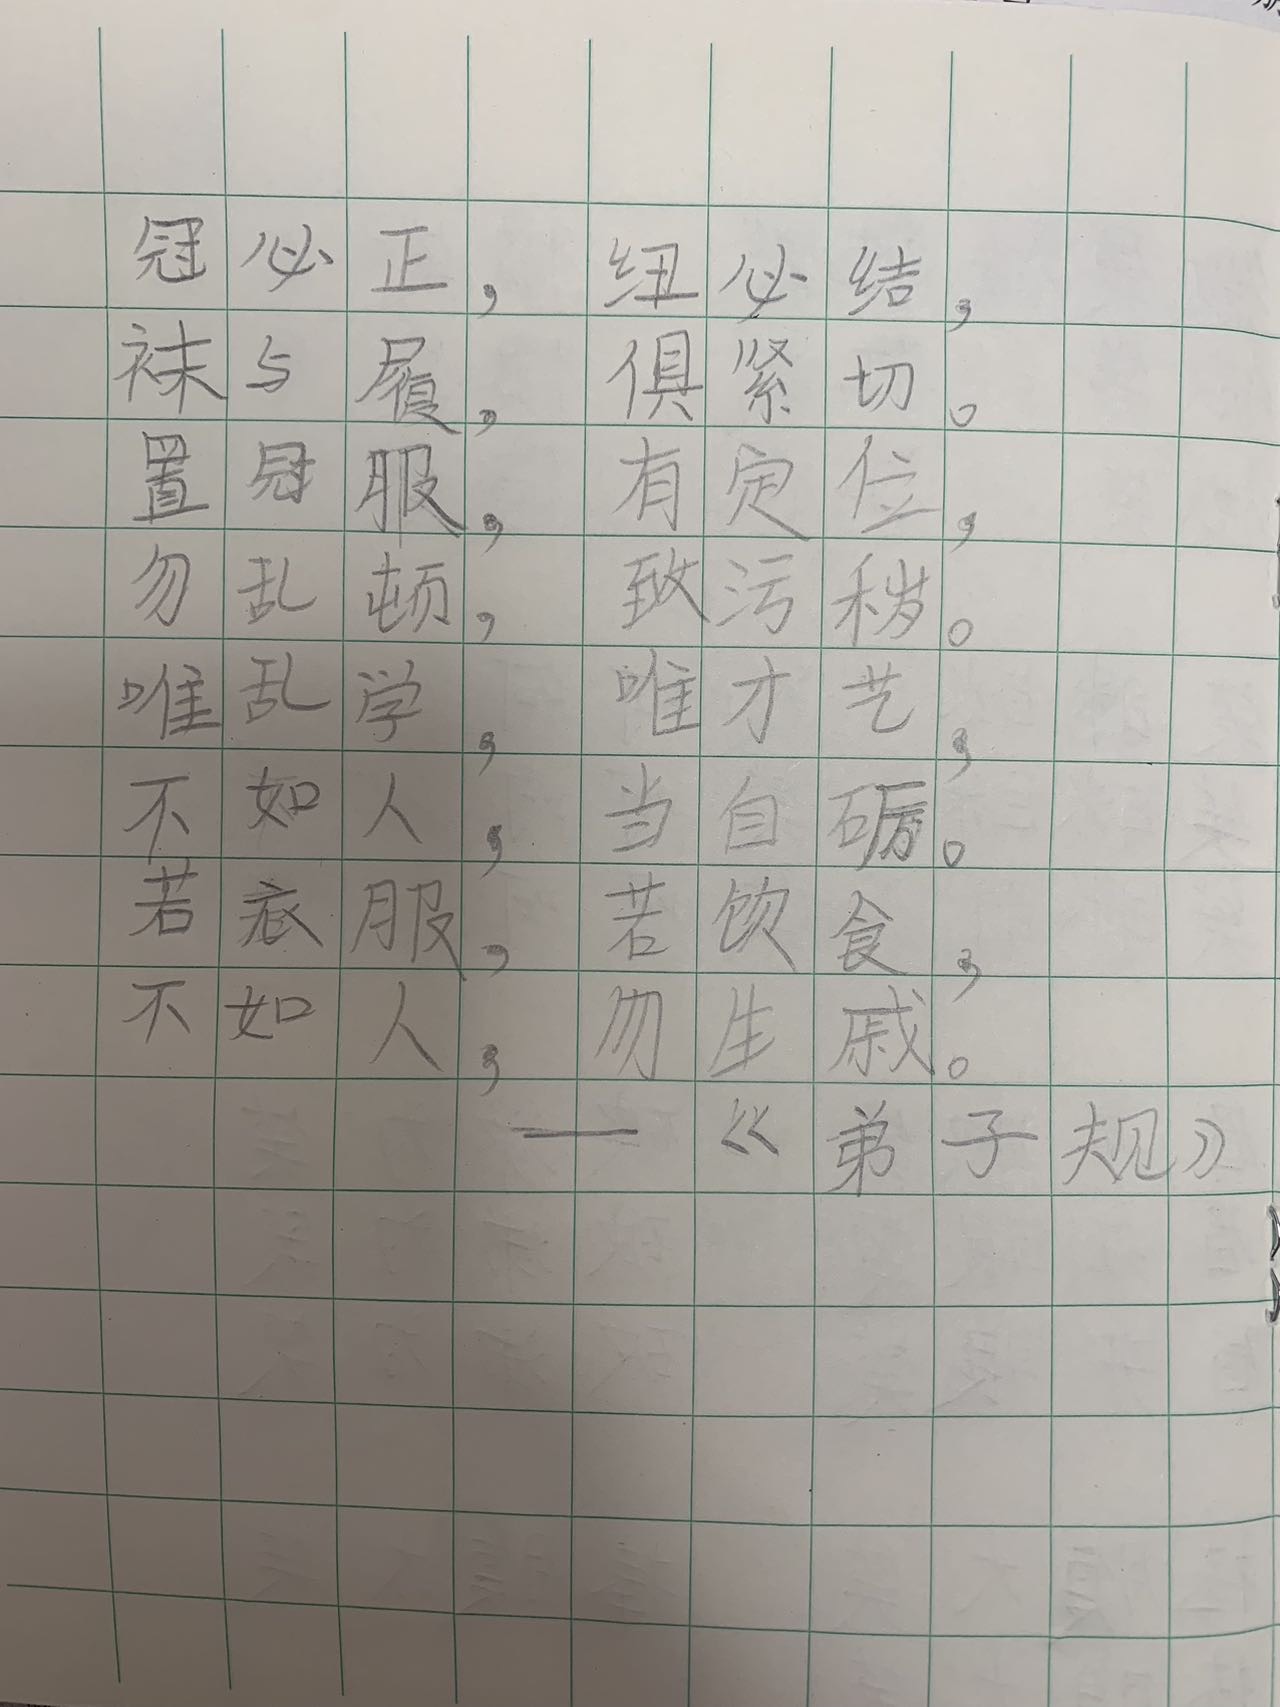 冠必正，纽必结，
袜与履，俱紧切。
置冠服，有定位，
勿乱顿，致污秽。
唯乱学，唯才艺，
不如人，当自砺。
若衣服，若饮食，
不如人，勿生戚。
——《弟子规》